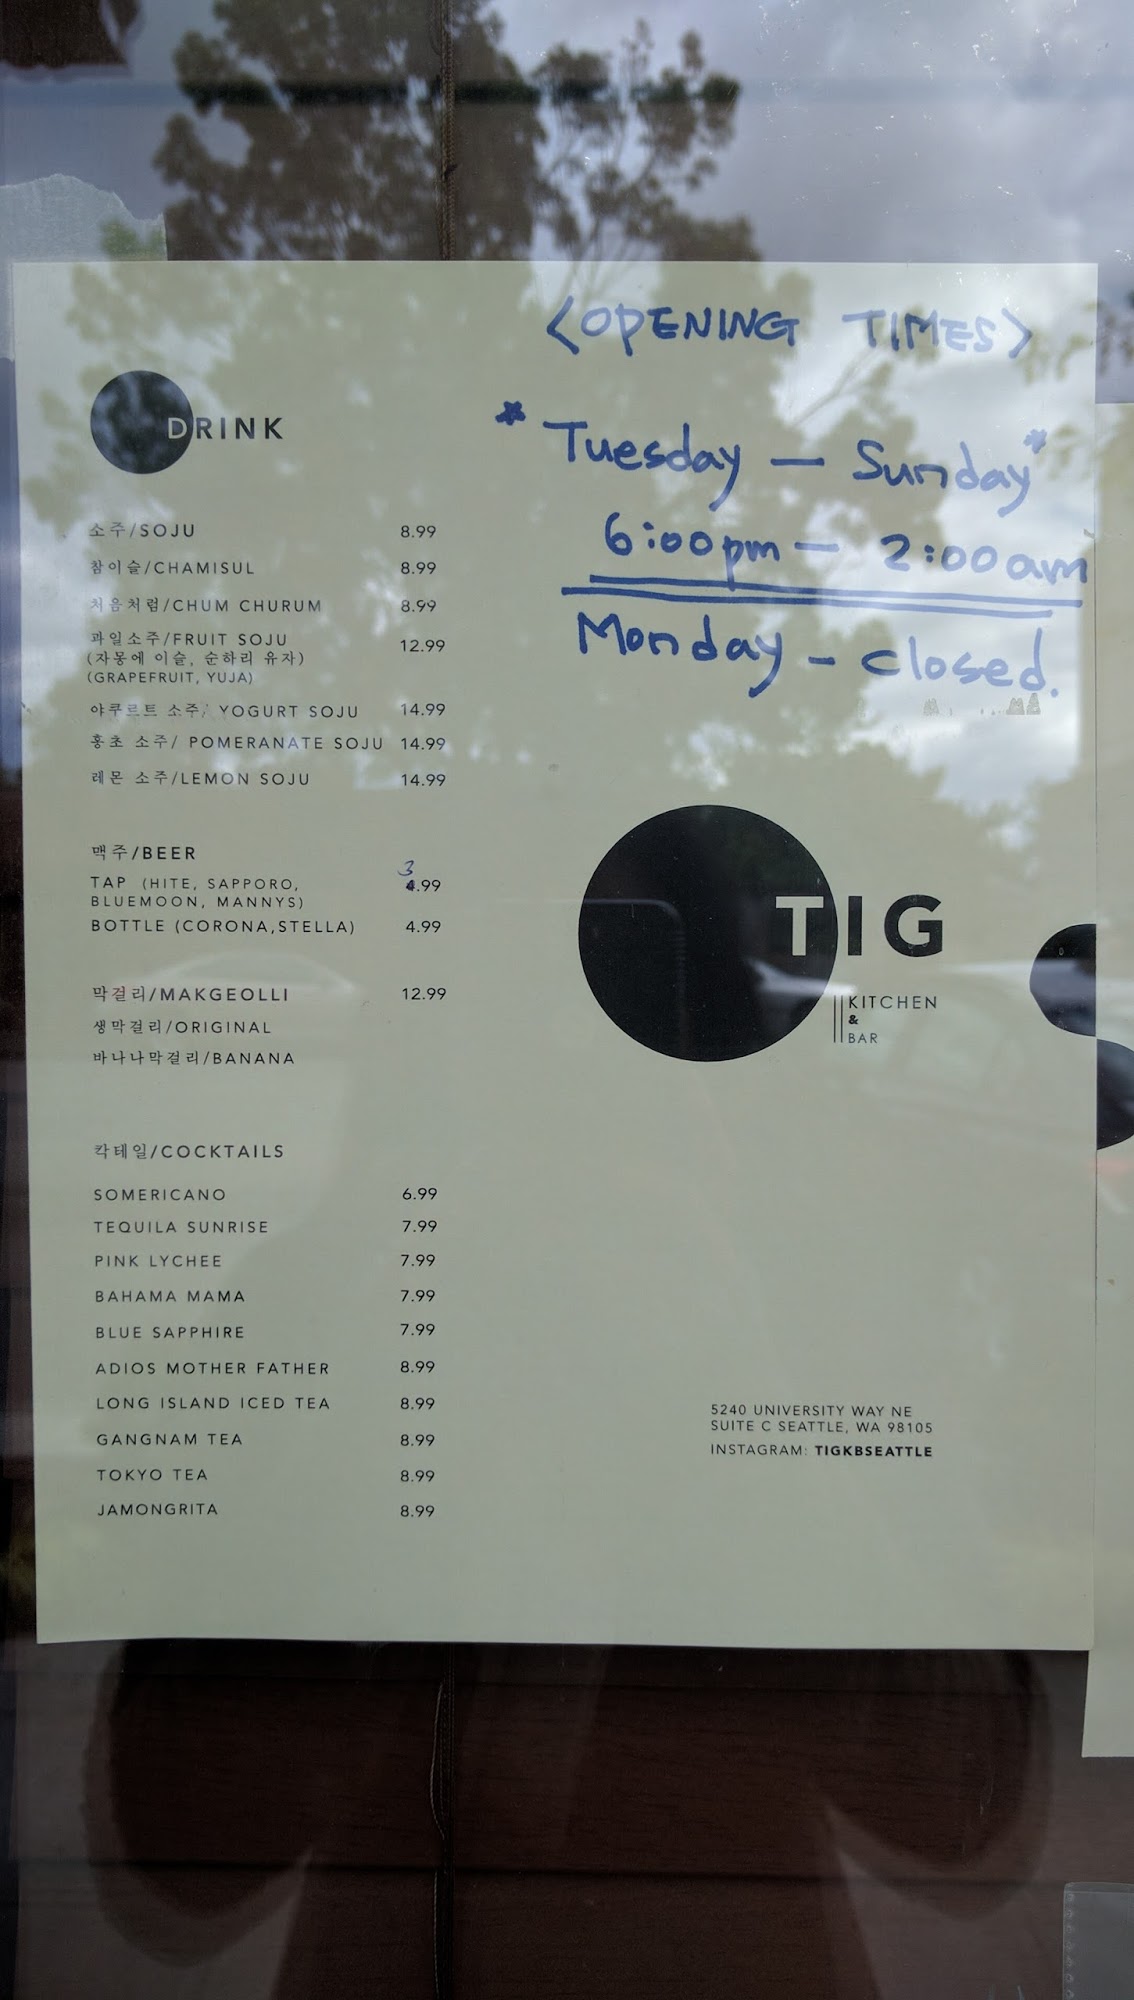 <OPENING TIMES>
* Tuesday — Sunday *
6:00pm — 2:00am
Monday - closed.
DRINK
소주/SOJU 8.99
참이슬/CHAMISUL 8.99
처음처럼/CHUM CHURUM 8.99
과일소주/FRUIT SOJU 12.99
(자몽에 이슬, 순하리 유자)
(GRAPEFRUIT, YUJA)
야쿠르트 소주/ YOGURT SOJU 14.99
홍초 소주/ POMERANATE SOJU 14.99
레몬 소주/LEMON SOJU 14.99
맥주/BEER
TAP (HITE, SAPPORO, 3.99
BLUEMOON, MANNYS)
BOTTLE (CORONA,STELLA) 4.99
막걸리/MAKGEOLLI 12.99
생막걸리/ORIGINAL
바나나막걸리/BANANA
칵테일/COCKTAILS
SOMERICANO 6.99
TEQUILA SUNRISE 7.99
PINK LYCHEE 7.99
BAHAMA MAMA 7.99
BLUE SAPPHIRE 7.99
ADIOS MOTHER FATHER 8.99
LONG ISLAND ICED TEA 8.99
GANGNAM TEA 8.99
TOKYO TEA 8.99
JAMONGRITA 8.99
TIG
KITCHEN
&
BAR
5240 UNIVERSITY WAY NE
SUITE C SEATTLE, WA 98105
INSTAGRAM: TIGKBSEATTLE